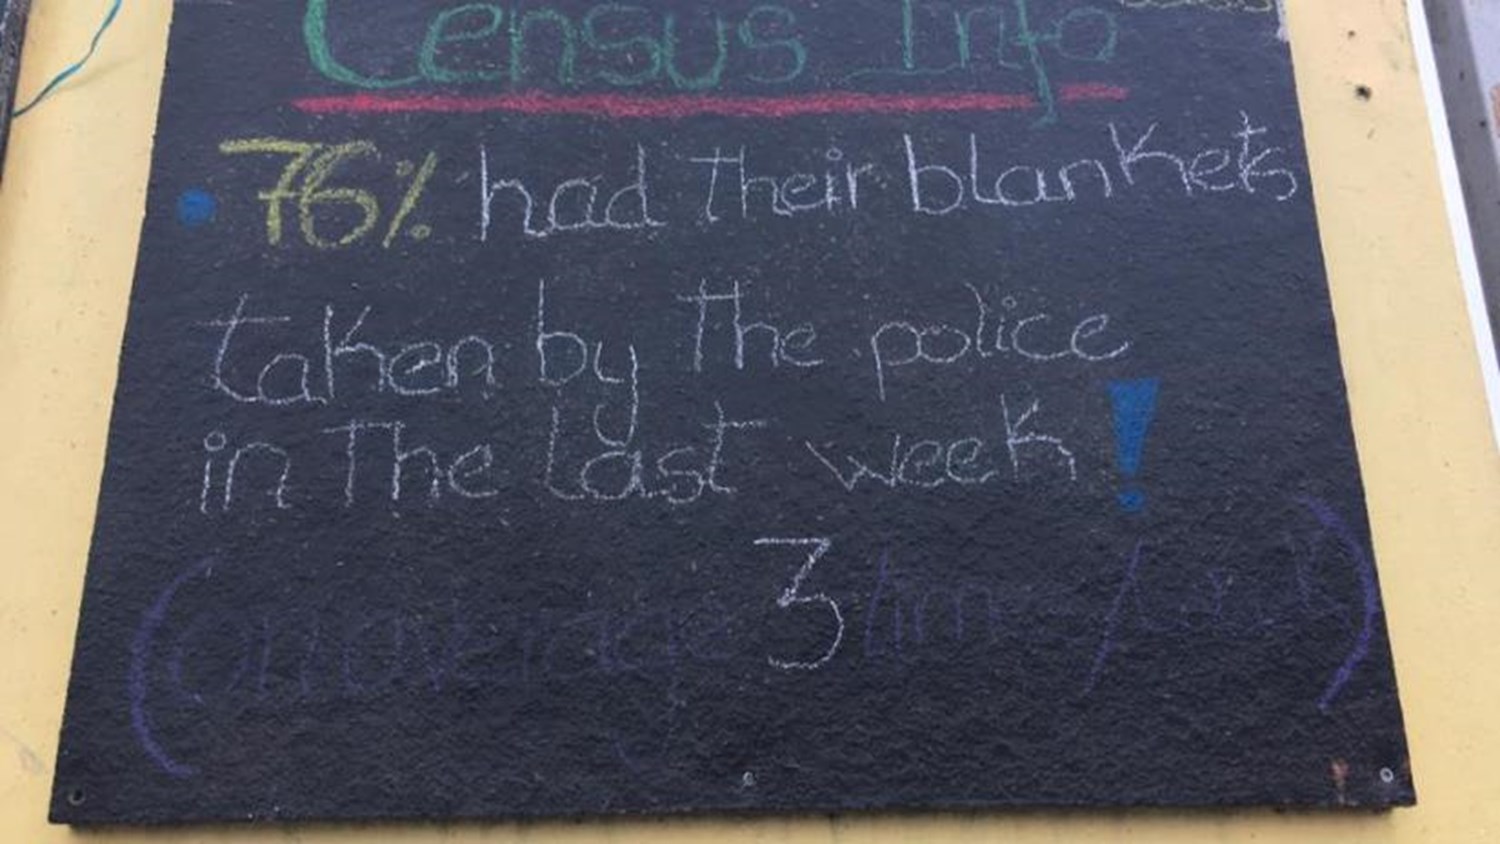 Census Info
• 76% had their blankets
taken by the police
in the last week!
(on average 3 times /